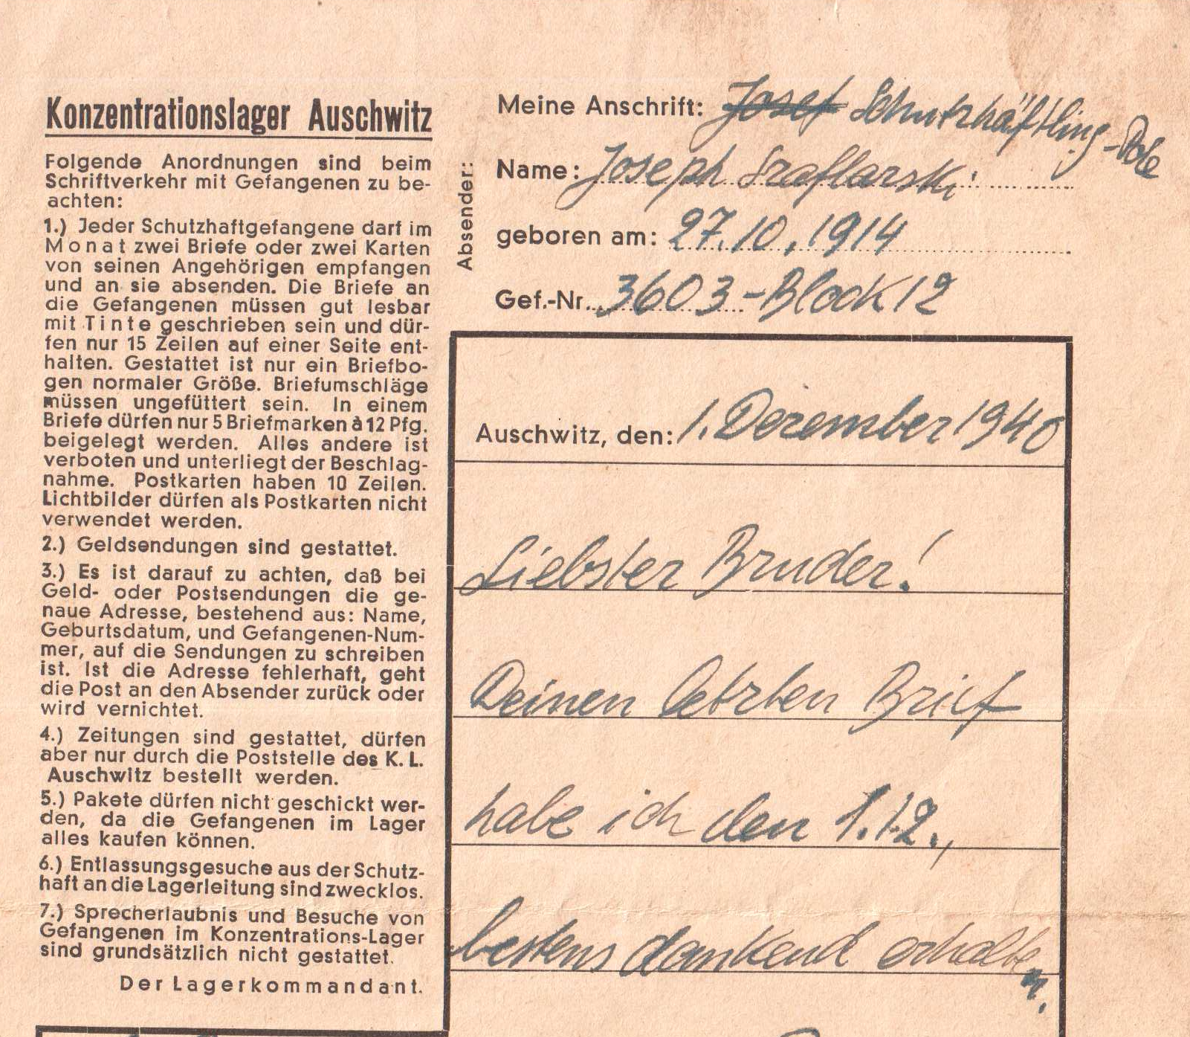 Konzentrationslager Auschwitz
Folgende Anordnungen sind beim
Schriftverkehr mit Gefangenen zu be-
achten:
1.) Jeder Schutzhaftgefangene darf im
Monat zwei Briefe oder zwei Karten
von seinen Angehörigen empfangen
und an sie absenden. Die Briefe an
die Gefangenen müssen gut lesbar
mit Tinte geschrieben sein und dür-
fen nur 15 Zeilen auf einer Seite ent-
halten. Gestattet ist nur ein Briefbo-
gen normaler Größe. Briefumschläge
müssen ungefüttert sein. In einem
Briefe dürfen nur 5 Briefmarken à 12 Pfg.
beigelegt werden. Alles andere ist
verboten und unterliegt der Beschlag-
nahme. Postkarten haben 10 Zeilen.
Lichtbilder dürfen als Postkarten nicht
verwendet werden.
2.) Geldsendungen sind gestattet.
3.) Es ist darauf zu achten, daß bei
Geld- oder Postsendungen die ge-
naue Adresse, bestehend aus: Name,
Geburtsdatum, und Gefangenen-Num-
mer, auf die Sendungen zu schreiben
ist. Ist die Adresse fehlerhaft, geht
die Post an den Absender zurück oder
wird vernichtet.
4.) Zeitungen sind gestattet, dürfen
aber nur durch die Poststelle des K. L.
Auschwitz bestellt werden.
5.) Pakete dürfen nicht geschickt wer-
den, da die Gefangenen im Lager
alles kaufen können.
6.) Entlassungsgesuche aus der Schutz-
haft an die Lagerleitung sind zwecklos.
7.) Sprecherlaubnis und Besuche von
Gefangenen im Konzentrations-Lager
sind grundsätzlich nicht gestattet.
Der Lagerkommandant.
Absender:
Meine Anschrift: Josef Schutzhäftling-Pole
Name: Joseph Szaflarski
geboren am: 27.10.1914
Gef.-Nr. 3603-Block 12
Auschwitz, den: 1. Dezember 1940
Liebster Bruder!
Deinen letzten Brief
habe ich den 1.12.,
bestens dankend erhalten.